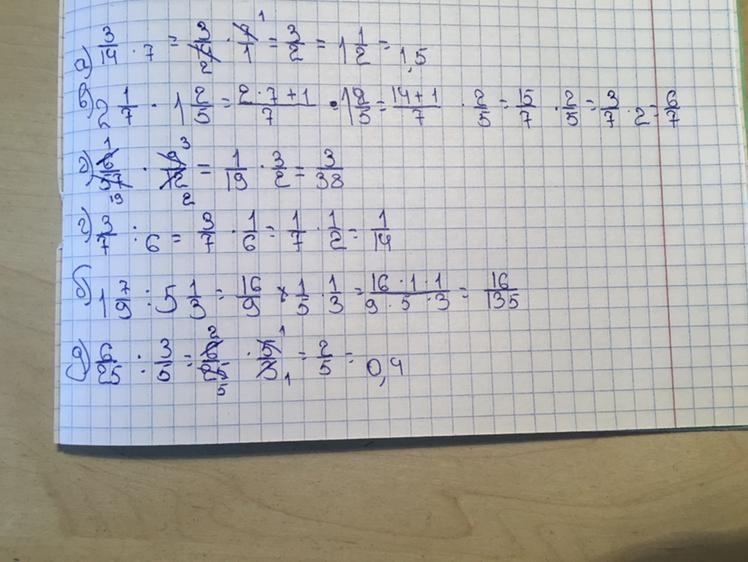 а) 3/14 · 7 = 3/14 2 · 7/1 1 = 3/2 = 1 1/2 = 1,5
в) 2 1/7 · 1 2/5 = 2·7+1/7 · 1 2/5 = 14+1/7 · 2/5 = 15/7 · 2/5 = 3/7 · 2 = 6/7
б) 6/57 1 19 · 9/12 3 2 = 1/19 · 3/2 = 3/38
г) 3/7 : 6 = 3/7 · 1/6 = 1/7 · 1/2 = 1/14
б) 1 7/9 : 5 1/3 = 16/9 × 1/5 · 1/3 = 16·1·1/9·5·3 = 16/135
д) 6/25 : 3/5 = 6/25 2 5 · 5/3 1 1 = 2/5 = 0,4